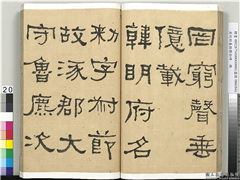 罔窮聲垂
億載
韓明府名
勑字叔節
故涿郡大
守魯麃次
20